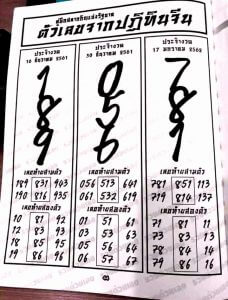 คู่มือสลากกินแบ่งรัฐบาล
ตัวเลขจากปฏิทินจีน
ประจำงวด
16 ธันวาคม 2561
1
8
9
เลขท้ายสามตัว
189 831 943
190 816 935
เลขท้ายสองตัว
10 81 92
12 83 91
18 85 94
19 86 96
ประจำงวด
30 ธันวาคม 2561
0
5
6
เลขท้ายสามตัว
056 513 641
061 532 619
เลขท้ายสองตัว
01 51 61
03 53 63
05 56 64
06 57 67
ประจำงวด
17 มกราคม 2562
7
8
1
เลขท้ายสามตัว
781 851 113
719 814 137
เลขท้ายสองตัว
71 81 11
73 83 13
78 84 14
79 86 16